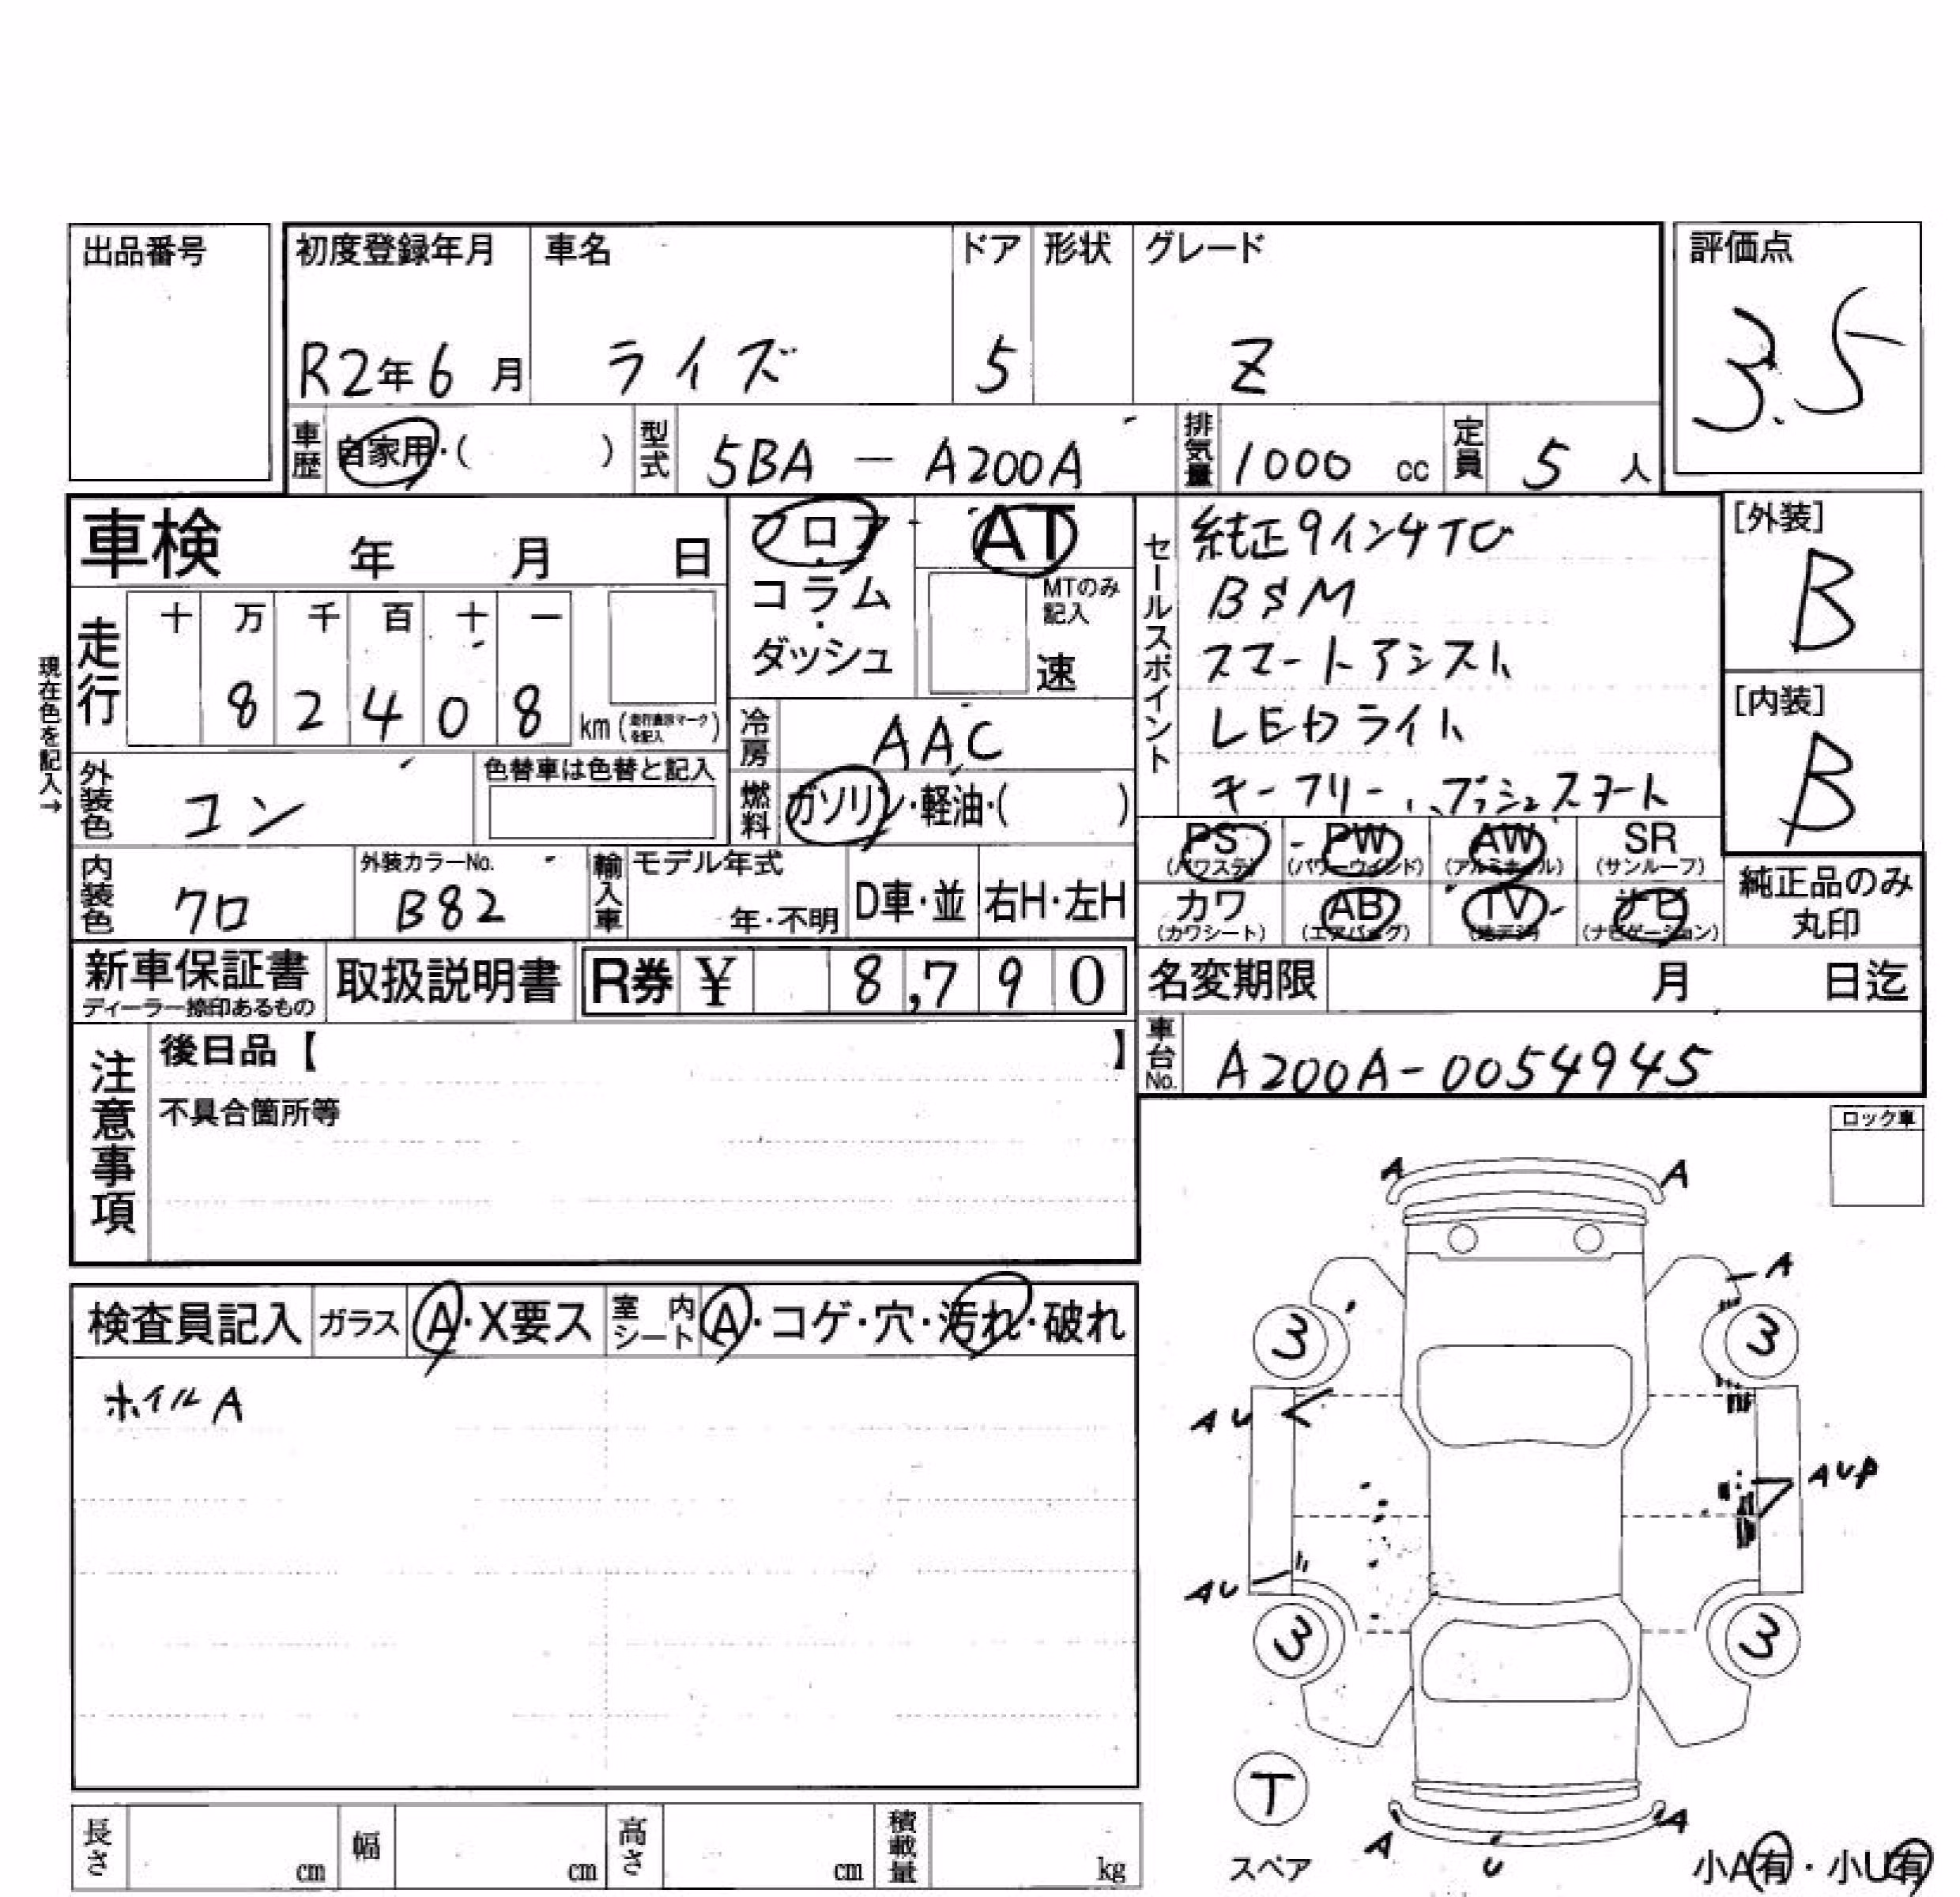 出品番号
初度登録年月 車名 ドア 形状 グレード 評価点
R2年6月 ライズ 5 Z 3.5
車歴 自家用・( ) 型式 5BA - A200A 排気量 1000 cc 定員 5 人
車検 年 月 日
フロア・コラム・ダッシュ
AT
MTのみ記入
速
セールスポイント
純正9インチTV
BSM
スマートアシスト
LEDライト
キーフリー、プッシュスタート
[外装]
B
[内装]
B
現在色を記入→
走行 十 万 千 百 十 一
8 2 4 0 8 km (走行表示マークを記入)
冷房 AAC
外装色 コン 色替車は色替と記入
燃料 ガソリン・軽油・( )
PS (パワステ) PW (パワーウインド) AW (アルミホイル) SR (サンルーフ)
カワ (カワシート) AB (エアバッグ) TV (地デジ) ナビ (ナビゲーション)
純正品のみ丸印
内装色 クロ 外装カラーNo. B82 輸入車 モデル年式 年・不明 D車・並 右H・左H
新車保証書 取扱説明書 R券 ¥ 8,790
ディーラー捺印あるもの
名変期限 月 日迄
車台No. A200A-0054945
注意事項
後日品【 】
不具合箇所等
ロック車
検査員記入 ガラス A・X要ス 室内シート A・コゲ・穴・汚れ・破れ
ホイルA
A A
A
3 3
AU
AUP
AU
3 3
T
スペア
A U A
小A有・小U有
長さ cm 幅 cm 高さ cm 積載量 kg